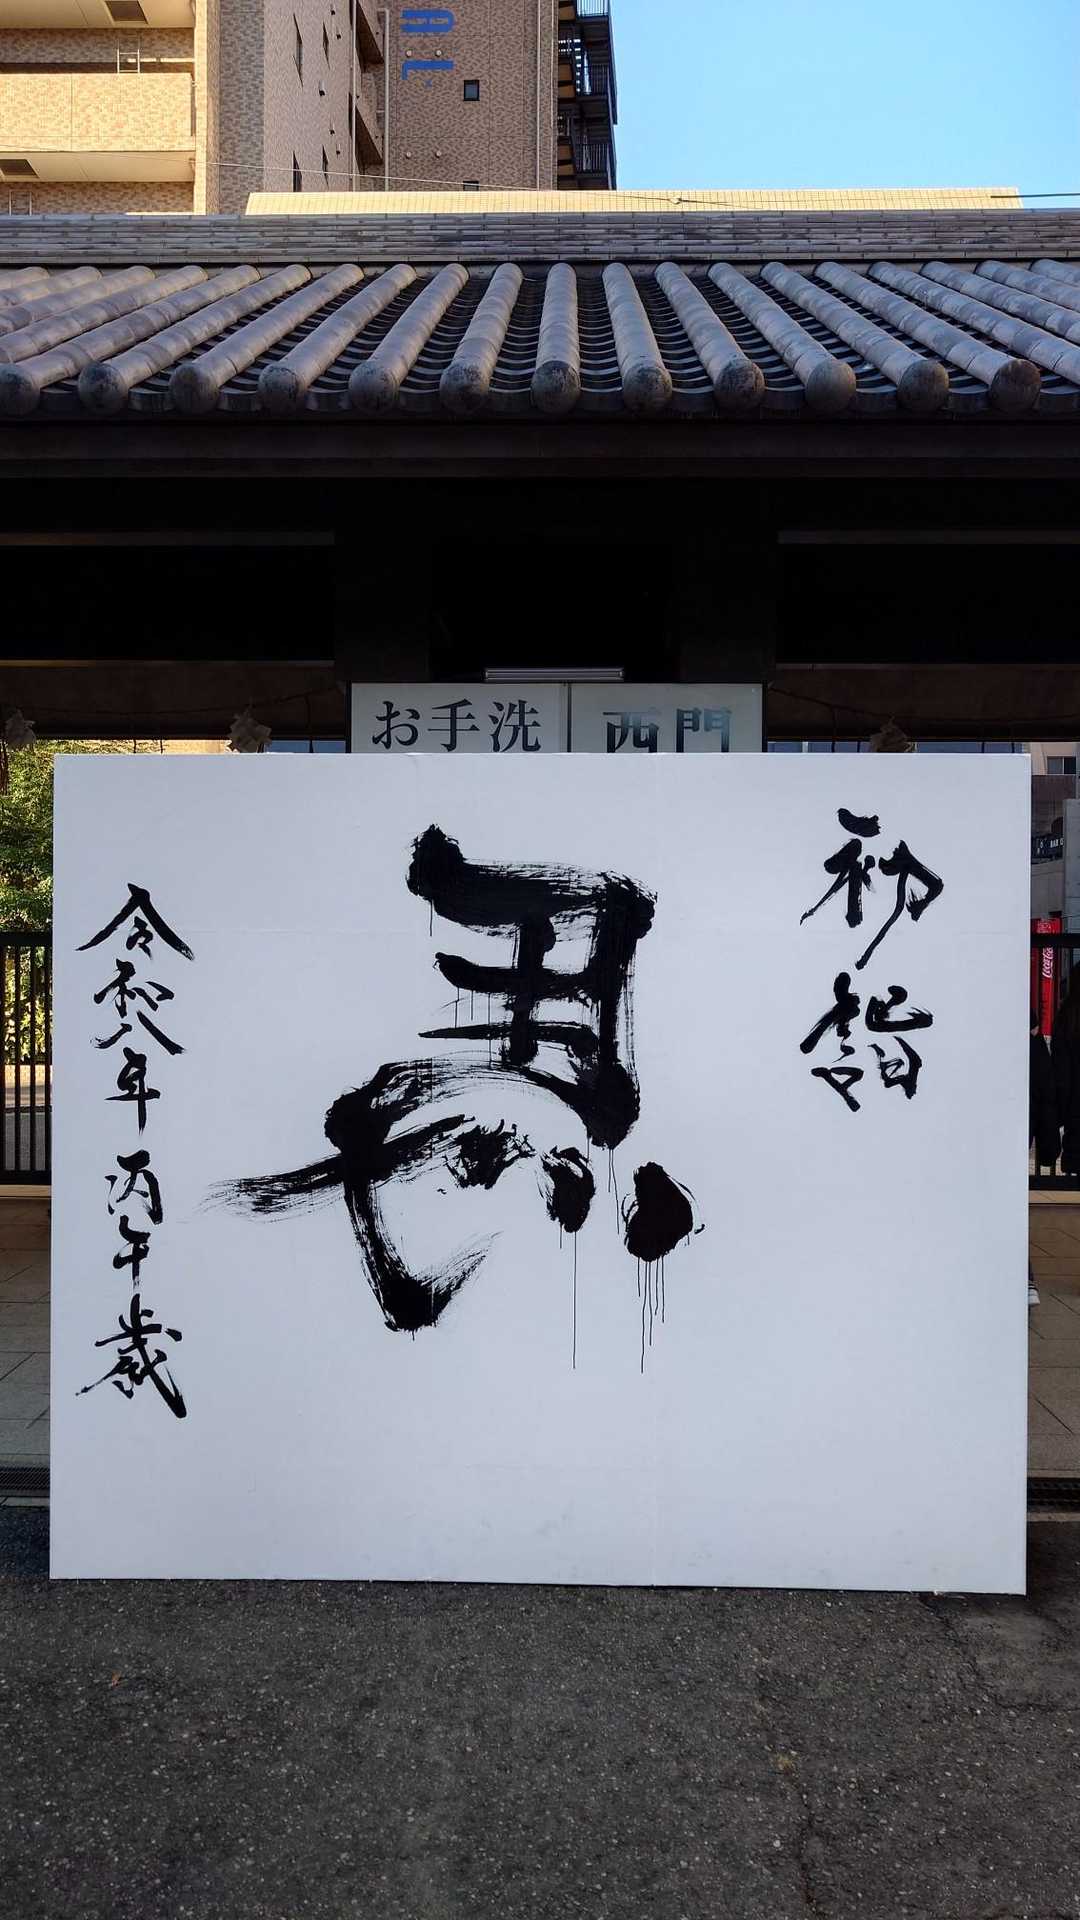 お手洗
西門
初詣
馬
令和八年 丙午歳
Coca-Cola